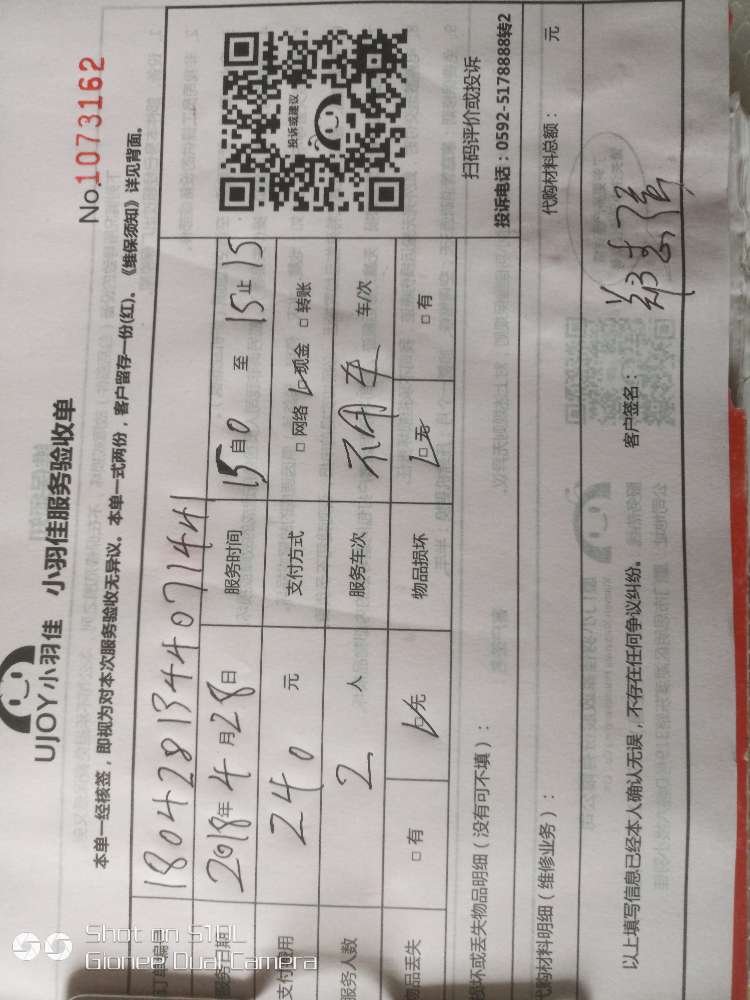 UJOY小羽佳 小羽佳服务验收单
No.1073162
本单一经核签，即视为对本次服务验收无异议。本单一式两份，客户留存一份(红)。《维保须知》详见背面。
订单编号 1804281344071441
服务日期 2018年4月28日 服务时间 15自0 至 15止15
支付费用 240 元 支付方式 □网络 □现金 □转账
服务人数 2 人 服务车次 不用车 车/次
物品丢失 □有 □无 物品损坏 □无 □有
投诉或建议
扫码评价或投诉
投诉电话：0592-5178888转2
损坏或丢失物品明细（没有可不填）：
代购材料明细（维修业务）： 代购材料总额： 元
以上填写信息已经本人确认无误，不存在任何争议纠纷。 客户签名：
Shot on S10L
Gionee Dual Camera